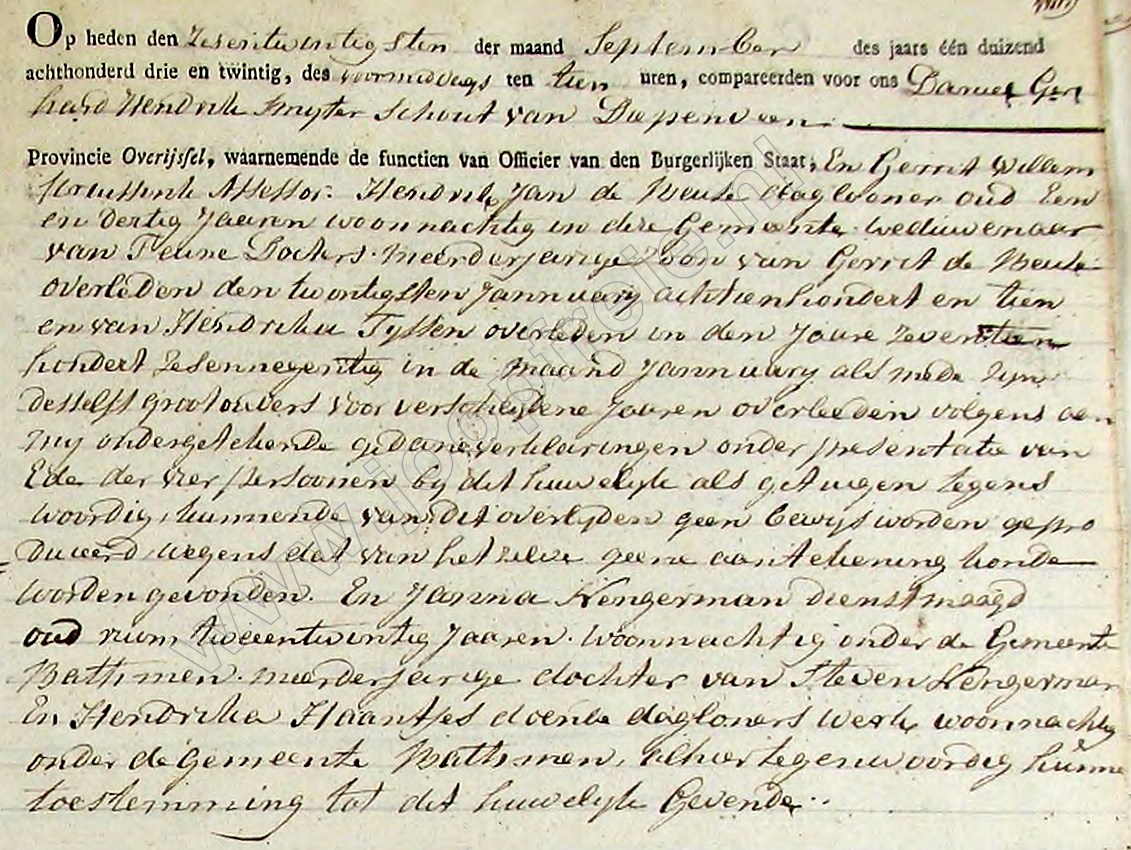 Op heden den Zesentwintigsten der maand September des jaars één duizend
achthonderd drie en twintig, des voormiddags ten tien uren, compareerden voor ons Daniel Ger
hard Hendrik Schout van Diepenveen
Provincie Overijssel, waarnemende de functien van Officier van den Burgerlijken Staat, En Gerrit Willem
Assessor. Hendrik Jan de Beule dagloner oud Een
en dertig Jaaren woonnachtig in dese Gemeente. weduwenaar
van Teune meerderjarige Zoon van Gerrit de Beule
overleden den twontigsten Jannuary achtienhondert en tien
en van Hendrika Tyssen overleden in den Jaare zeventien
hondert Zesennegentig in de maand Jannuary als mede zyn
desselfs grootouders voor verscheydene Jaaren overleeden volgens aen
my ondergetekende gedane verklaringen onder presentatie van
Ede der vier persoonen by dit huwelyk als getuigen tegens
woordig, kunnende van dit overlyden geen bewys worden gepro
duceerd, wegens dat van het zelve geene aantekening konde
worden gevonden. En Janna Hengerman dienstmaagd
oud ruim tweeentwintig Jaaren. Woonnachtig onder de Gemeente
Bathmen. meerderjarige dochter van Steven Hengerman
En Hendrika Haantjes doende dagloners werk woonnachtig
onder de Gemeente Bathmen, alhier tegenwoordig hunne
toestemming tot dit huwelyk Gevende..